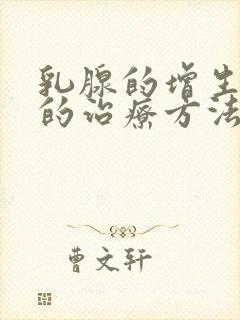 乳腺的增生
的治療方法
曹文轩